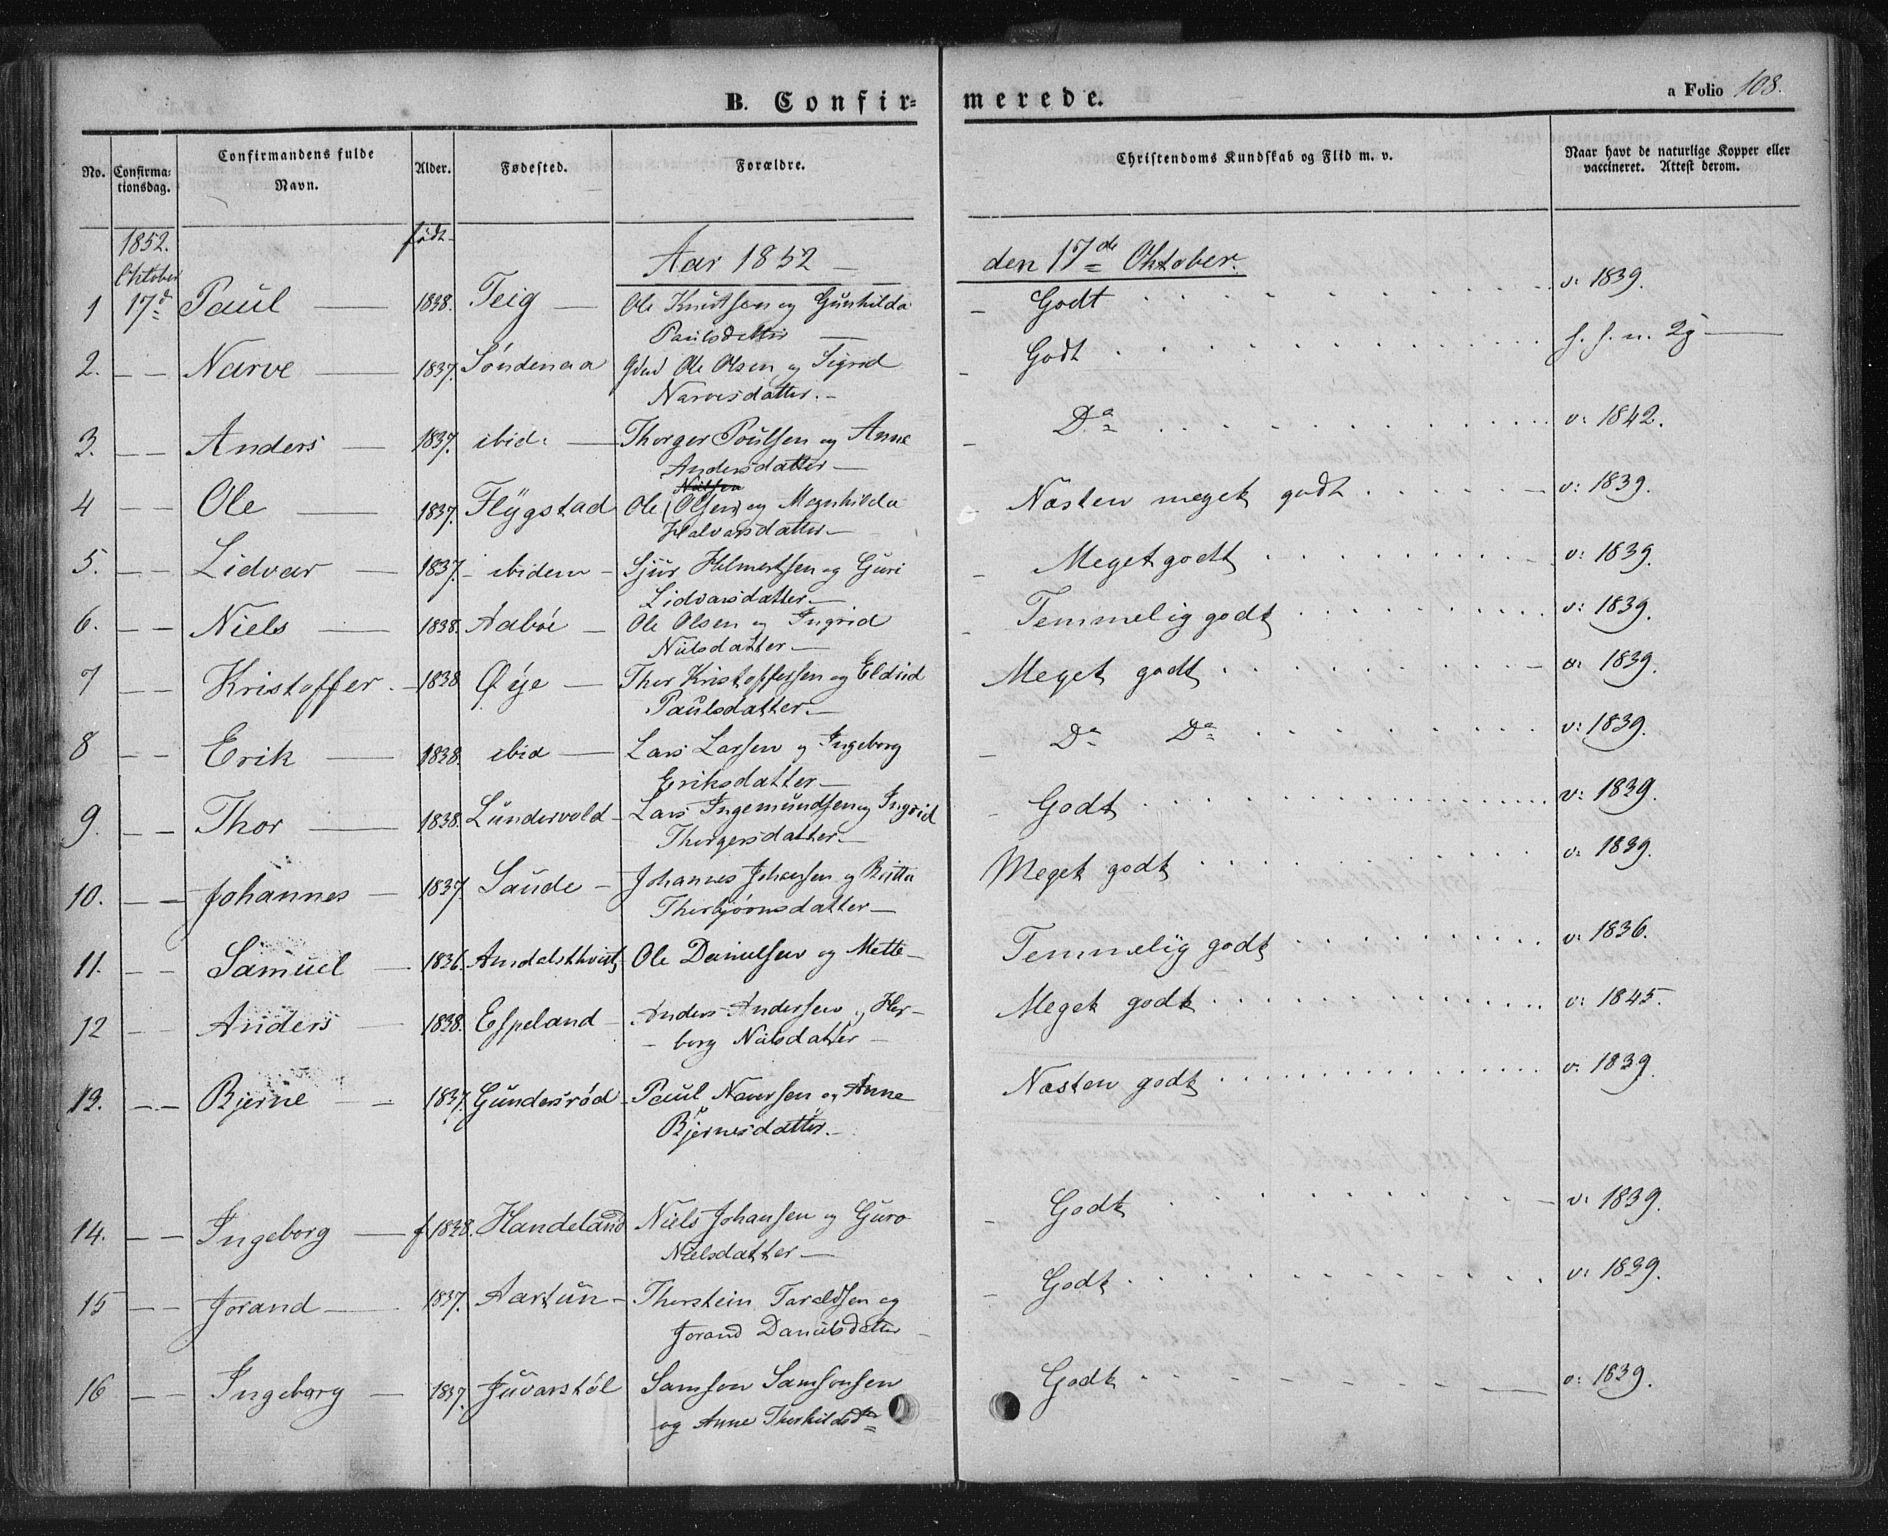 B. Confir= merede.
a Folio 108.
No. Confirma=tionsdag. Confirmandens fulde Navn. Alder. Fødested. Forældre. Christendoms Kundskab og Flid m. v. Naar havt de naturlige Kopper eller vaccineret. Attest derom.
1852. født
Oktober Aar 1852 — den 17de Oktober.
1 17d Paul — 1838. Teig — Ole Knutsen og Gunhilda — Godt v: 1839.
Paulsdatter —
2. — — Narve — 1837. Søndenaa Ole Olsen og Sigrid — Godt
Narvesdatter. —
3. — — Anders — 1837. ibid: — Thorger Poulsen og Anne — Da v: 1842.
Andersdatter —
Nilsen
4 — — Ole — 1837. Flÿgstad Ole (Olsen) og Magnhilda — Næsten meget godt v: 1839.
Halvorsdatter —
5. — — Lidvar — 1837. — ibidem — Sjur Helmertsen og Guri — Meget godt v: 1839.
Lidvarsdatter —
6. — — Niels — 1838. Aabøe — Ole Olsen og Ingrid — Temmelig godt v: 1839.
Nielsdatter —
7 — — Kristoffer. — 1838 Øye — Thor Kristoffersen og Eldrid Meget godt v: 1839.
Paulsdatter. —
8 — — Erik — 1838. ibid — Lars Larsen og Ingeborg — Da Da v: 1839.
Eriksdatter —
9. — — Thor — 1838. Lundervold — Lars Ingemundsen og Ingrid — Godt v: 1839.
Thorgersdatter —
10. — — Johannes — 1837. Saude — Johannes Johansen og Britta Meget godt v: 1839.
Thorbjørnsdatter —
11. — — Samuel — 1836. Ole Danielsen og Mette — Temmelig godt v: 1836.
12 — — Anders — 1838. Espeland — Anders Andersen og Her- Meget godt v: 1845.
— borg Nielsdatter —
13. — — Bjerne — 1837. Gundersrød — Paul Naversen og Anne Næsten godt v. 1839.
Bjernesdatter. —
14. — — Ingeborg — f 1838. Handeland Niels Johansen og Guro — Godt v: 1839.
Nielsdatter —
15 — — Jorand — 1837. Aartun — Thorstein Taraldsen og — Godt v: 1839.
Jorand Danielsdatter —
16 — — Ingeborg — 1837. Juvarstøl Samson Samsonsen Godt v: 1839.
og Anne Thorkildsdr